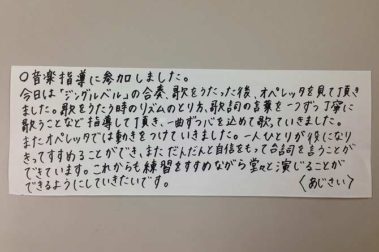 ○音楽指導に参加しました。
今日は「ジングルベル」の合奏、歌をうたった後、オペレッタを見て頂き
ました。歌をうたう時のリズムのとり方、歌詞の言葉を一つずつ丁寧に
歌うことなど指導して頂き、一曲ずつ心を込めて歌っていきました。
またオペレッタでは動きをつけていきました。一人ひとりが役になり
きってすすめることができ、まただんだんと自信をもって台詞を言うことが
できています。これからも練習をすすめながら堂々と演じることが
できるようにしていきたいです。 〈あじさい〉